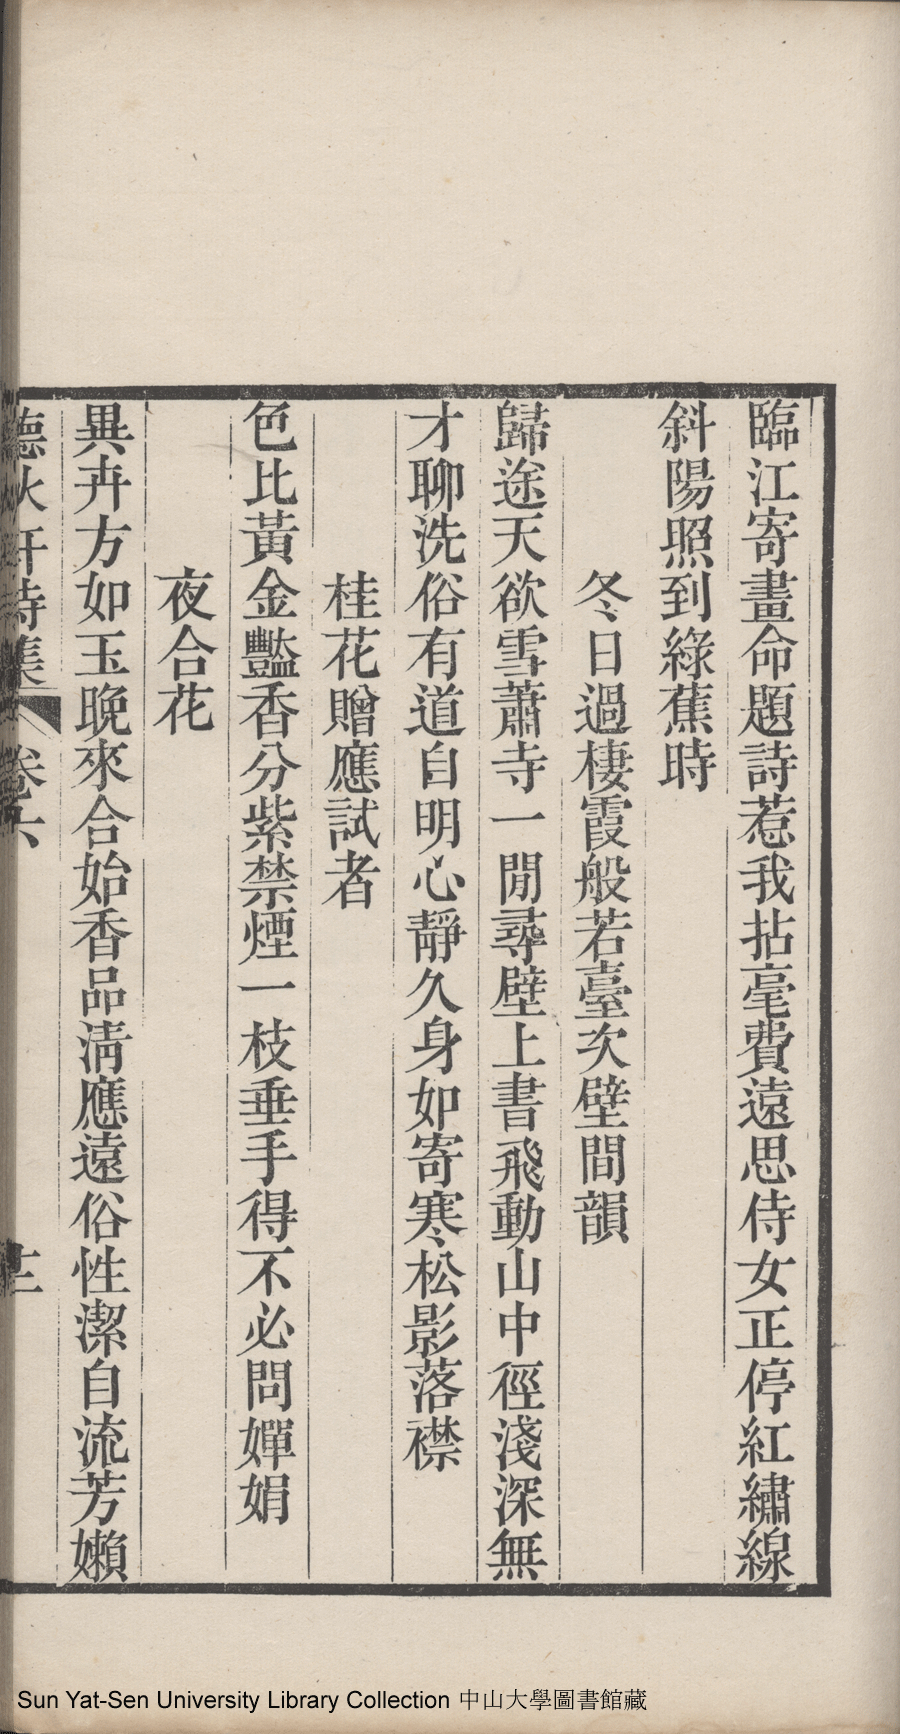 臨江寄畫命題詩惹我拈毫費遠思侍女正停紅繡線
斜陽照到綠蕉時
冬日過棲霞般若臺次壁間韻
歸途天欲雪蕭寺一閒尋壁上書飛動山中徑淺深無
才聊洗俗有道自明心靜久身如寄寒松影落襟
桂花贈應試者
色比黃金豔香分紫禁煙一枝垂手得不必問嬋娟
夜合花
異卉方如玉晚來合始香品淸應遠俗性潔自流芳嬾
聽秋軒詩集 卷六
Sun Yat-Sen University Library Collection 中山大學圖書館藏